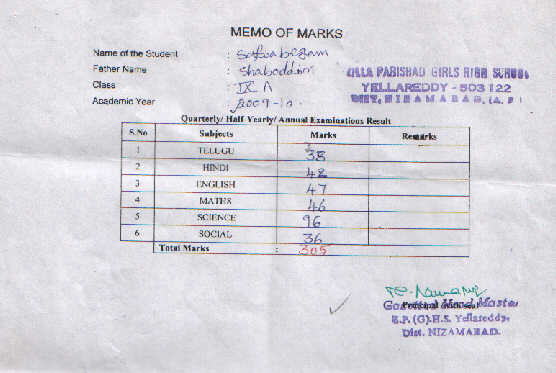 MEMO OF MARKS
Name of the Student : Safia begam
Father Name : Shaboddin
Class : IX A
Academic Year : 2009-10
ZILLA PARISHAD GIRLS HIGH SCHOOL
YELLAREDDY - 503122
DIST, NIZAMABAD, (A. P)
Quarterly/ Half Yearly/ Annual Examinations Result
S.No Subjects Marks Remarks
1 TELUGU 38
2 HINDI 42
3 ENGLISH 47
4 MATHS 46
5 SCIENCE 96
6 SOCIAL 36
Total Marks : 305
Head Master
Z.P. (G).H.S. Yellareddy.
Dist. NIZAMABAD.